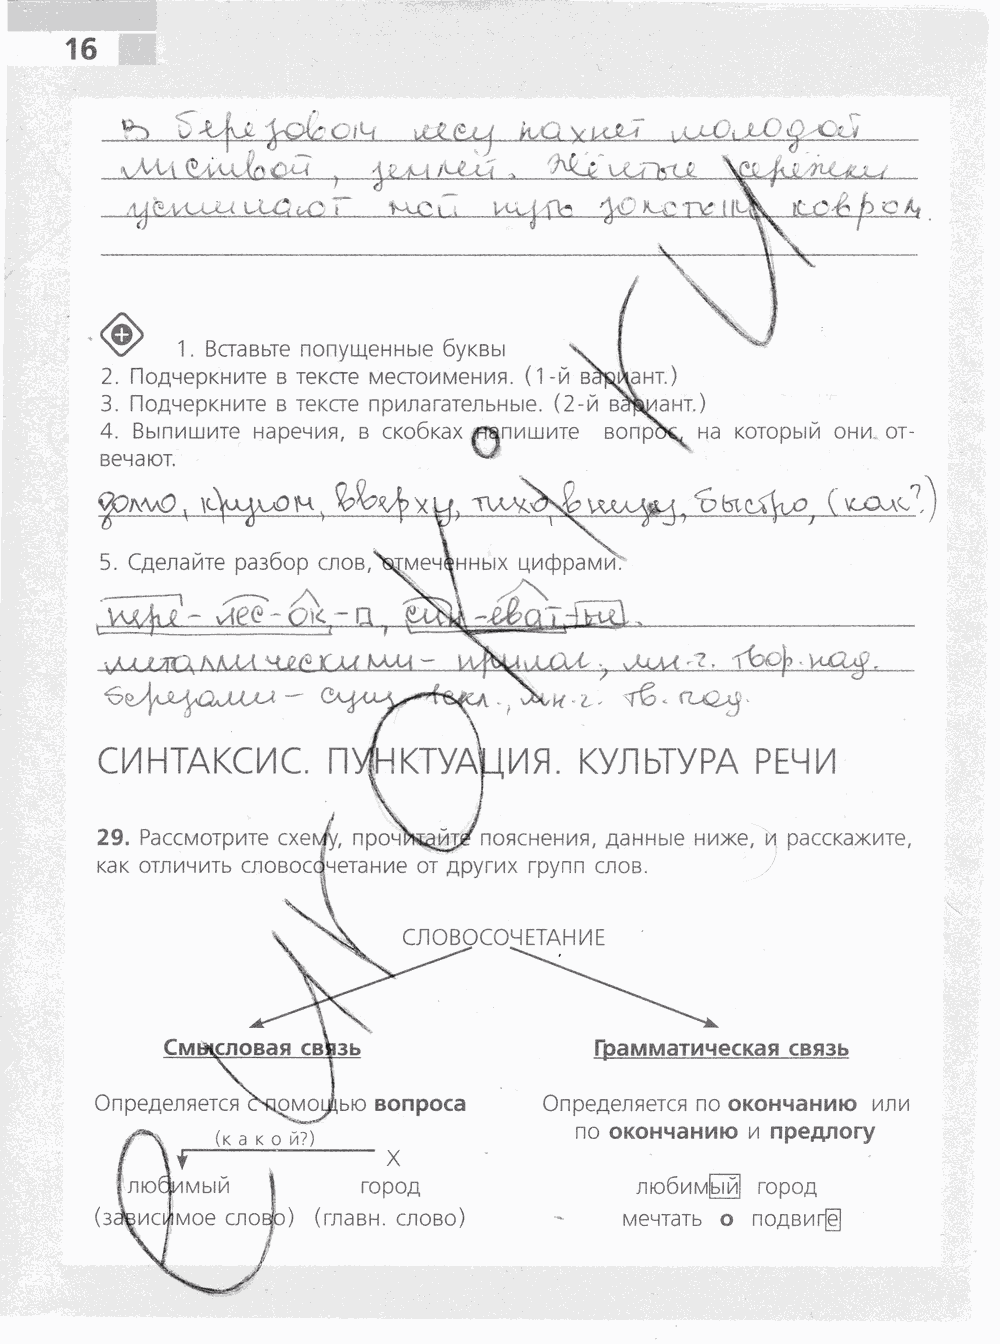 16
в березовом лесу пахнет молодой
листвой, землей. Жёлтые сережки
устилают мой путь золотым ковром.
1. Вставьте попущенные буквы
2. Подчеркните в тексте местоимения. (1-й вариант.)
3. Подчеркните в тексте прилагательные. (2-й вариант.)
4. Выпишите наречия, в скобках напишите вопрос, на который они от-
вечают.
кругом, вверху, тихо, внизу, быстро, (как?)
5. Сделайте разбор слов, отмеченных цифрами.
пере-лес-ок-□, син-еват-ые.
металлическими - прилаг., мн.ч. твор. пад.
березами - сущ. 1скл., мн.ч. тв. пад.
СИНТАКСИС. ПУНКТУАЦИЯ. КУЛЬТУРА РЕЧИ
29. Рассмотрите схему, прочитайте пояснения, данные ниже, и расскажите,
как отличить словосочетание от других групп слов.
СЛОВОСОЧЕТАНИЕ
Смысловая связь Грамматическая связь
Определяется с помощью вопроса Определяется по окончанию или
по окончанию и предлогу
(какой?)
X
любимый город любимый город
(зависимое слово) (главн. слово) мечтать о подвиге
eurokі.ru